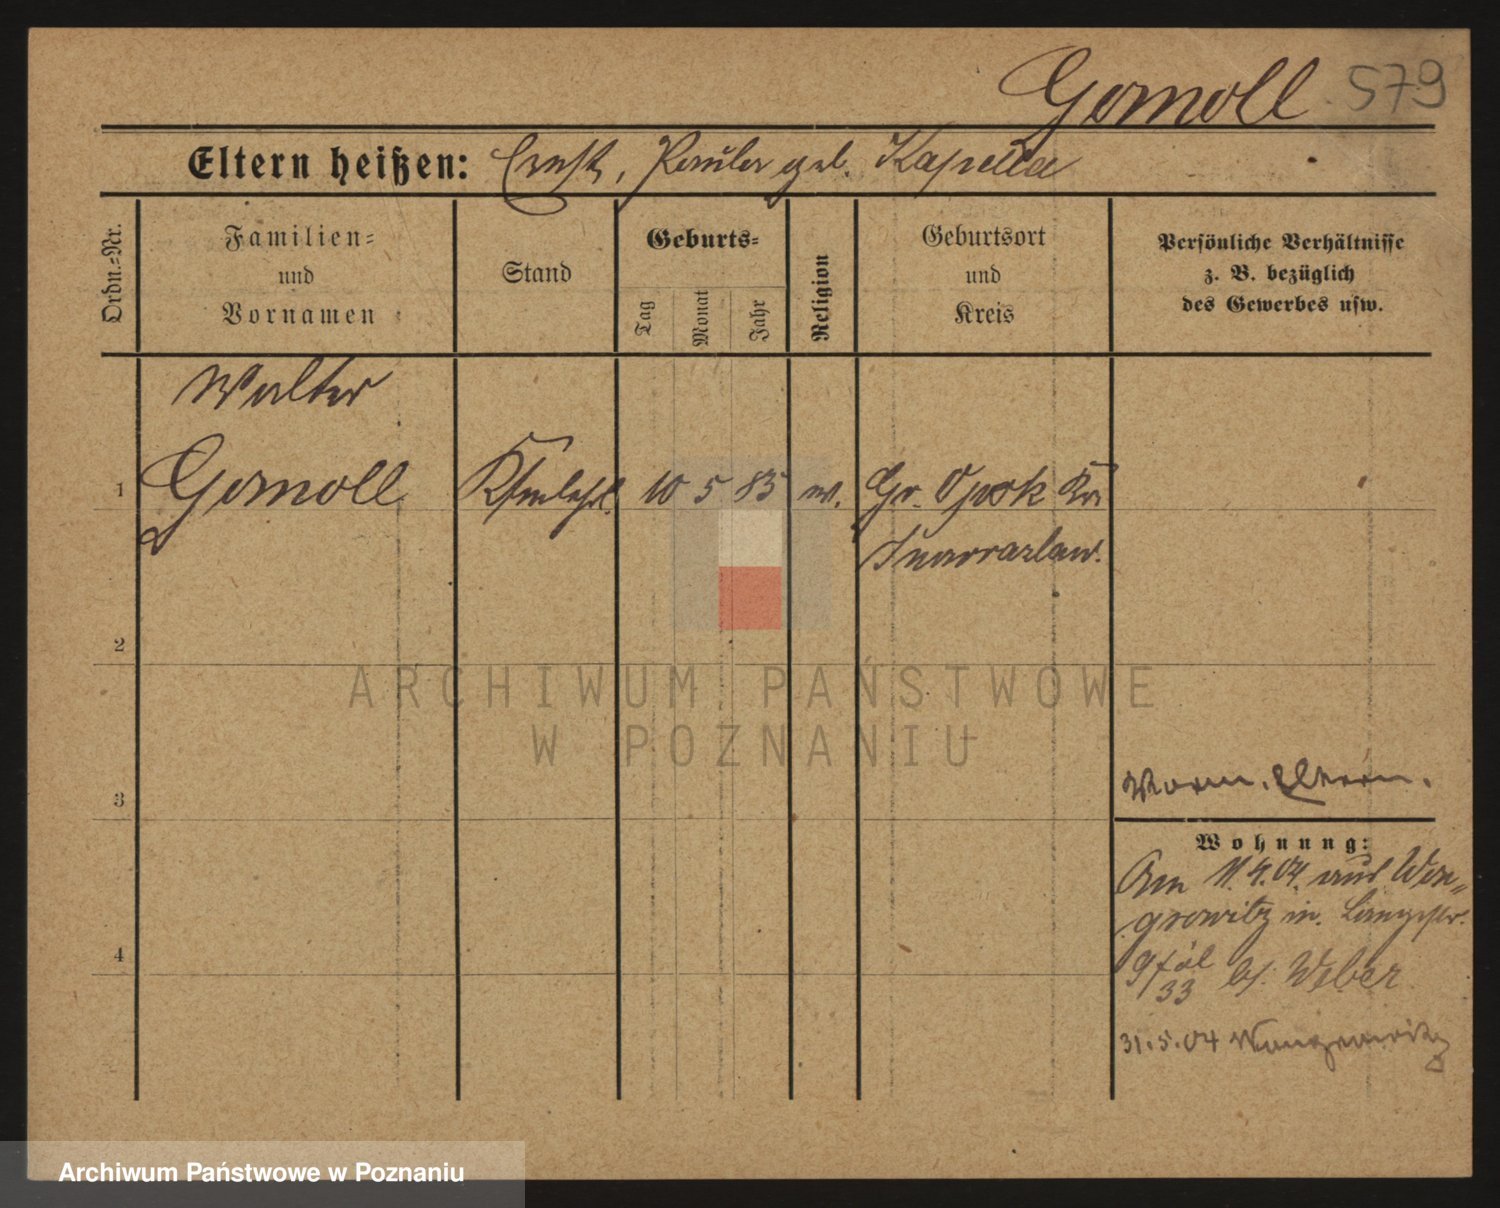 Gomoll 579
Eltern heißen: Ernst, Paula geb. Kapella
Ordn.-Nr.
Familien-
und
Vornamen
Stand
Geburts-
Tag
Monat
Jahr
Religion
Geburtsort
und
Kreis
Persönliche Verhältnisse
z. B. bezüglich
des Gewerbes usw.
Walter
1 Gomoll 10 5 85 Gr. Opok Krs
Inowrazlaw.
2
3
Eltern.
Wohnung:
4
Am 11.4.04. aus Won-
growitz in. Langestr.
9 bei Weber
33
31.5.04 Wongrowitz
ARCHIWUM PAŃSTWOWE
W POZNANIU
Archiwum Państwowe w Poznaniu